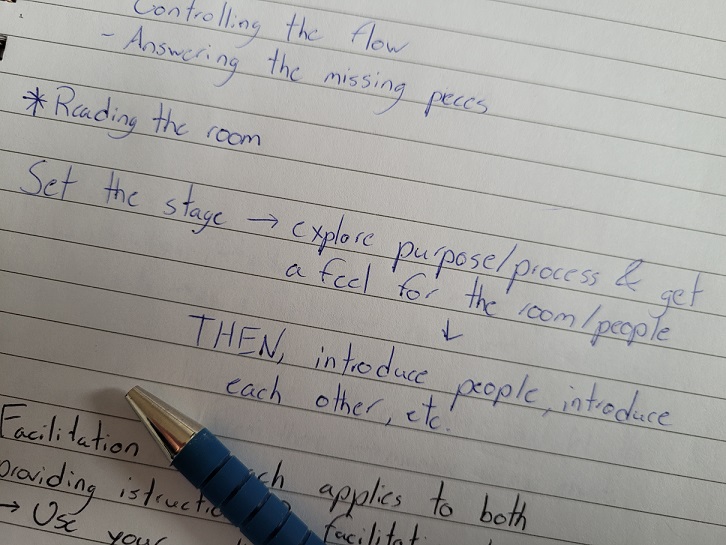 Controlling the flow
- Answering the missing peces
* Reading the room
Set the stage → explore purpose/process & get
a feel for the room/people
↓
THEN, introduce people, introduce
each other, etc.
Facilitation applies to both
providing
→ Use your